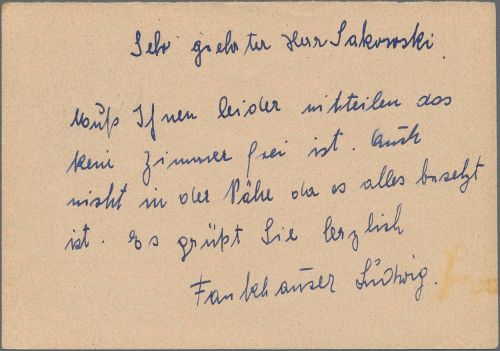 Sehr geehrter Herr Sakowski
Muß Ihnen leider mitteilen das
kein Zimmer frei ist. Auch
nicht in der Nähe da es alles besetzt
ist. Es grüßt Sie herzlich
Fankhauser Ludwig.